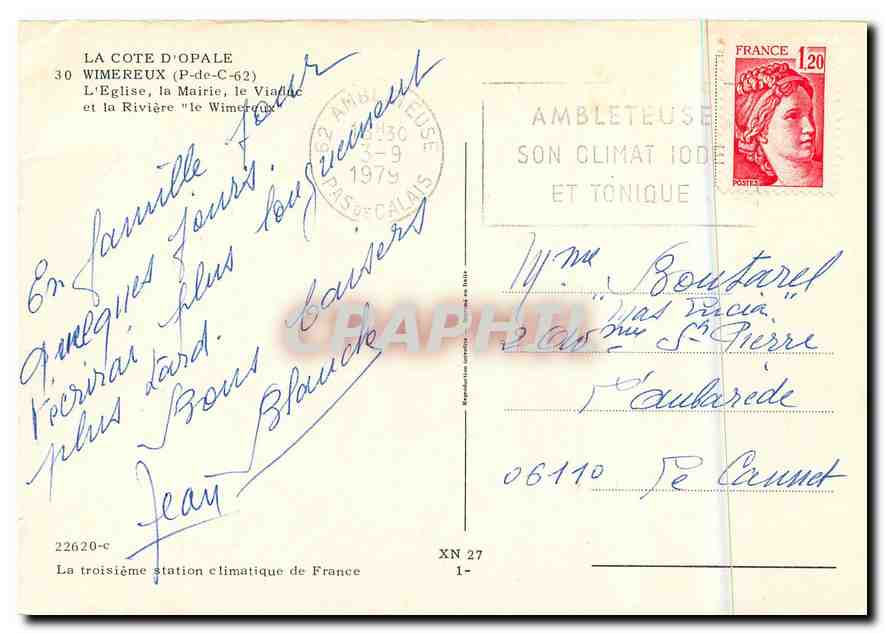 LA COTE D'OPALE
30 WIMEREUX (P-de-C-62)
L'Eglise, la Mairie, le Viaduc
et la Rivière "le Wimereux"
En famille pour
quelques jours.
t'écrirai plus longuement
plus tard.
Bons baisers
Jean Blanche
22620-c
La troisième station climatique de France
XN 27
1-
Reproduction interdite
62 AMBLETEUSE
3-9
1979
PAS DE CALAIS
AMBLETEUSE
SON CLIMAT IODE
ET TONIQUE
FRANCE 1,20
POSTES
Mme Boutarel
"Mas Lucia"
St Pierre
L'aubarède
06110 Le Cannet
CPAPHIL